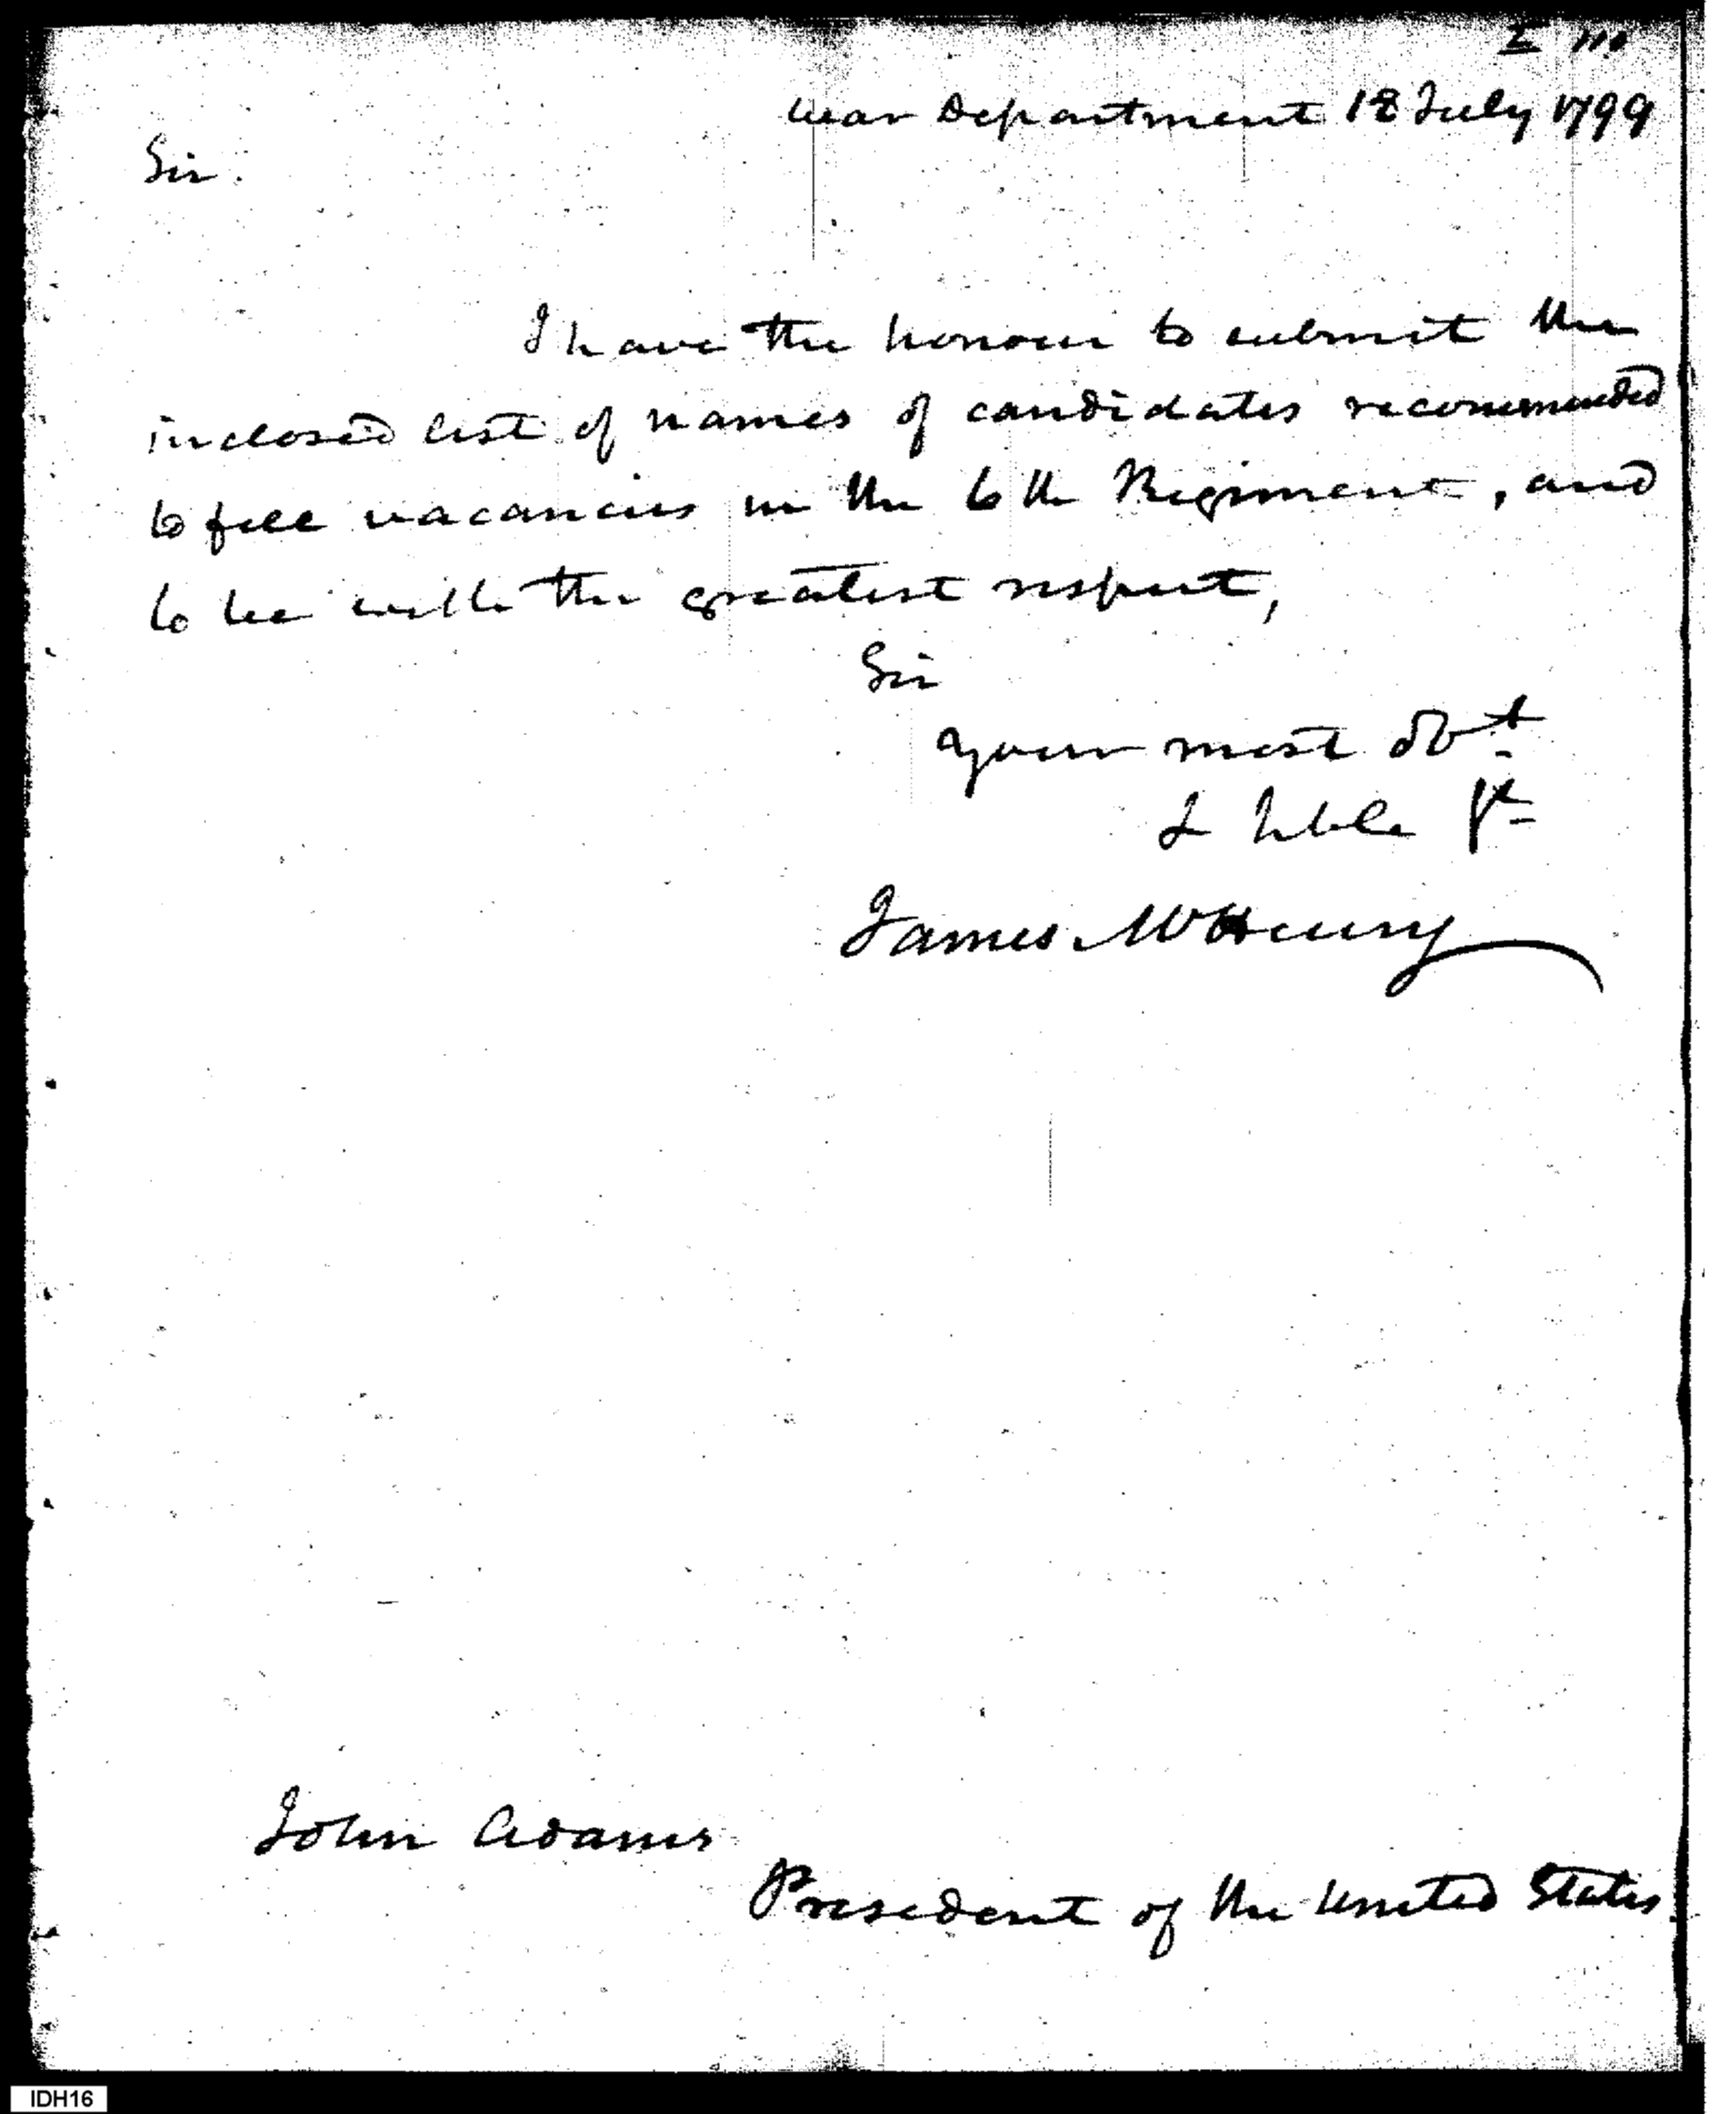 War Department 18 July 1799
Sir.
I have the honour to submit the
inclosed list of names of candidates recommended
to fill vacancies in the 6th Regiment, and
to be with the greatest respect,
Sir
your most obt
& hble st
James McHenry
John Adams
President of the United States.
IDH16